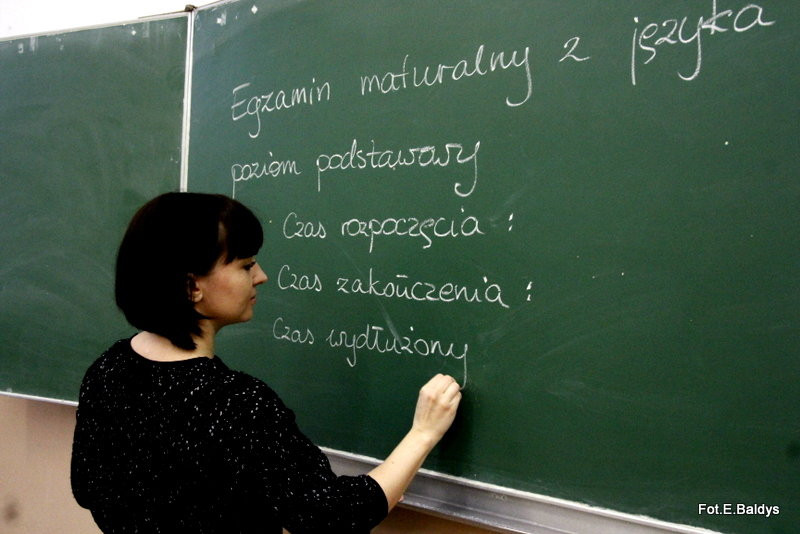 Egzamin maturalny z języka
poziom podstawowy
Czas rozpoczęcia :
Czas zakończenia :
Czas wydłużony
Fot.E.Baldys